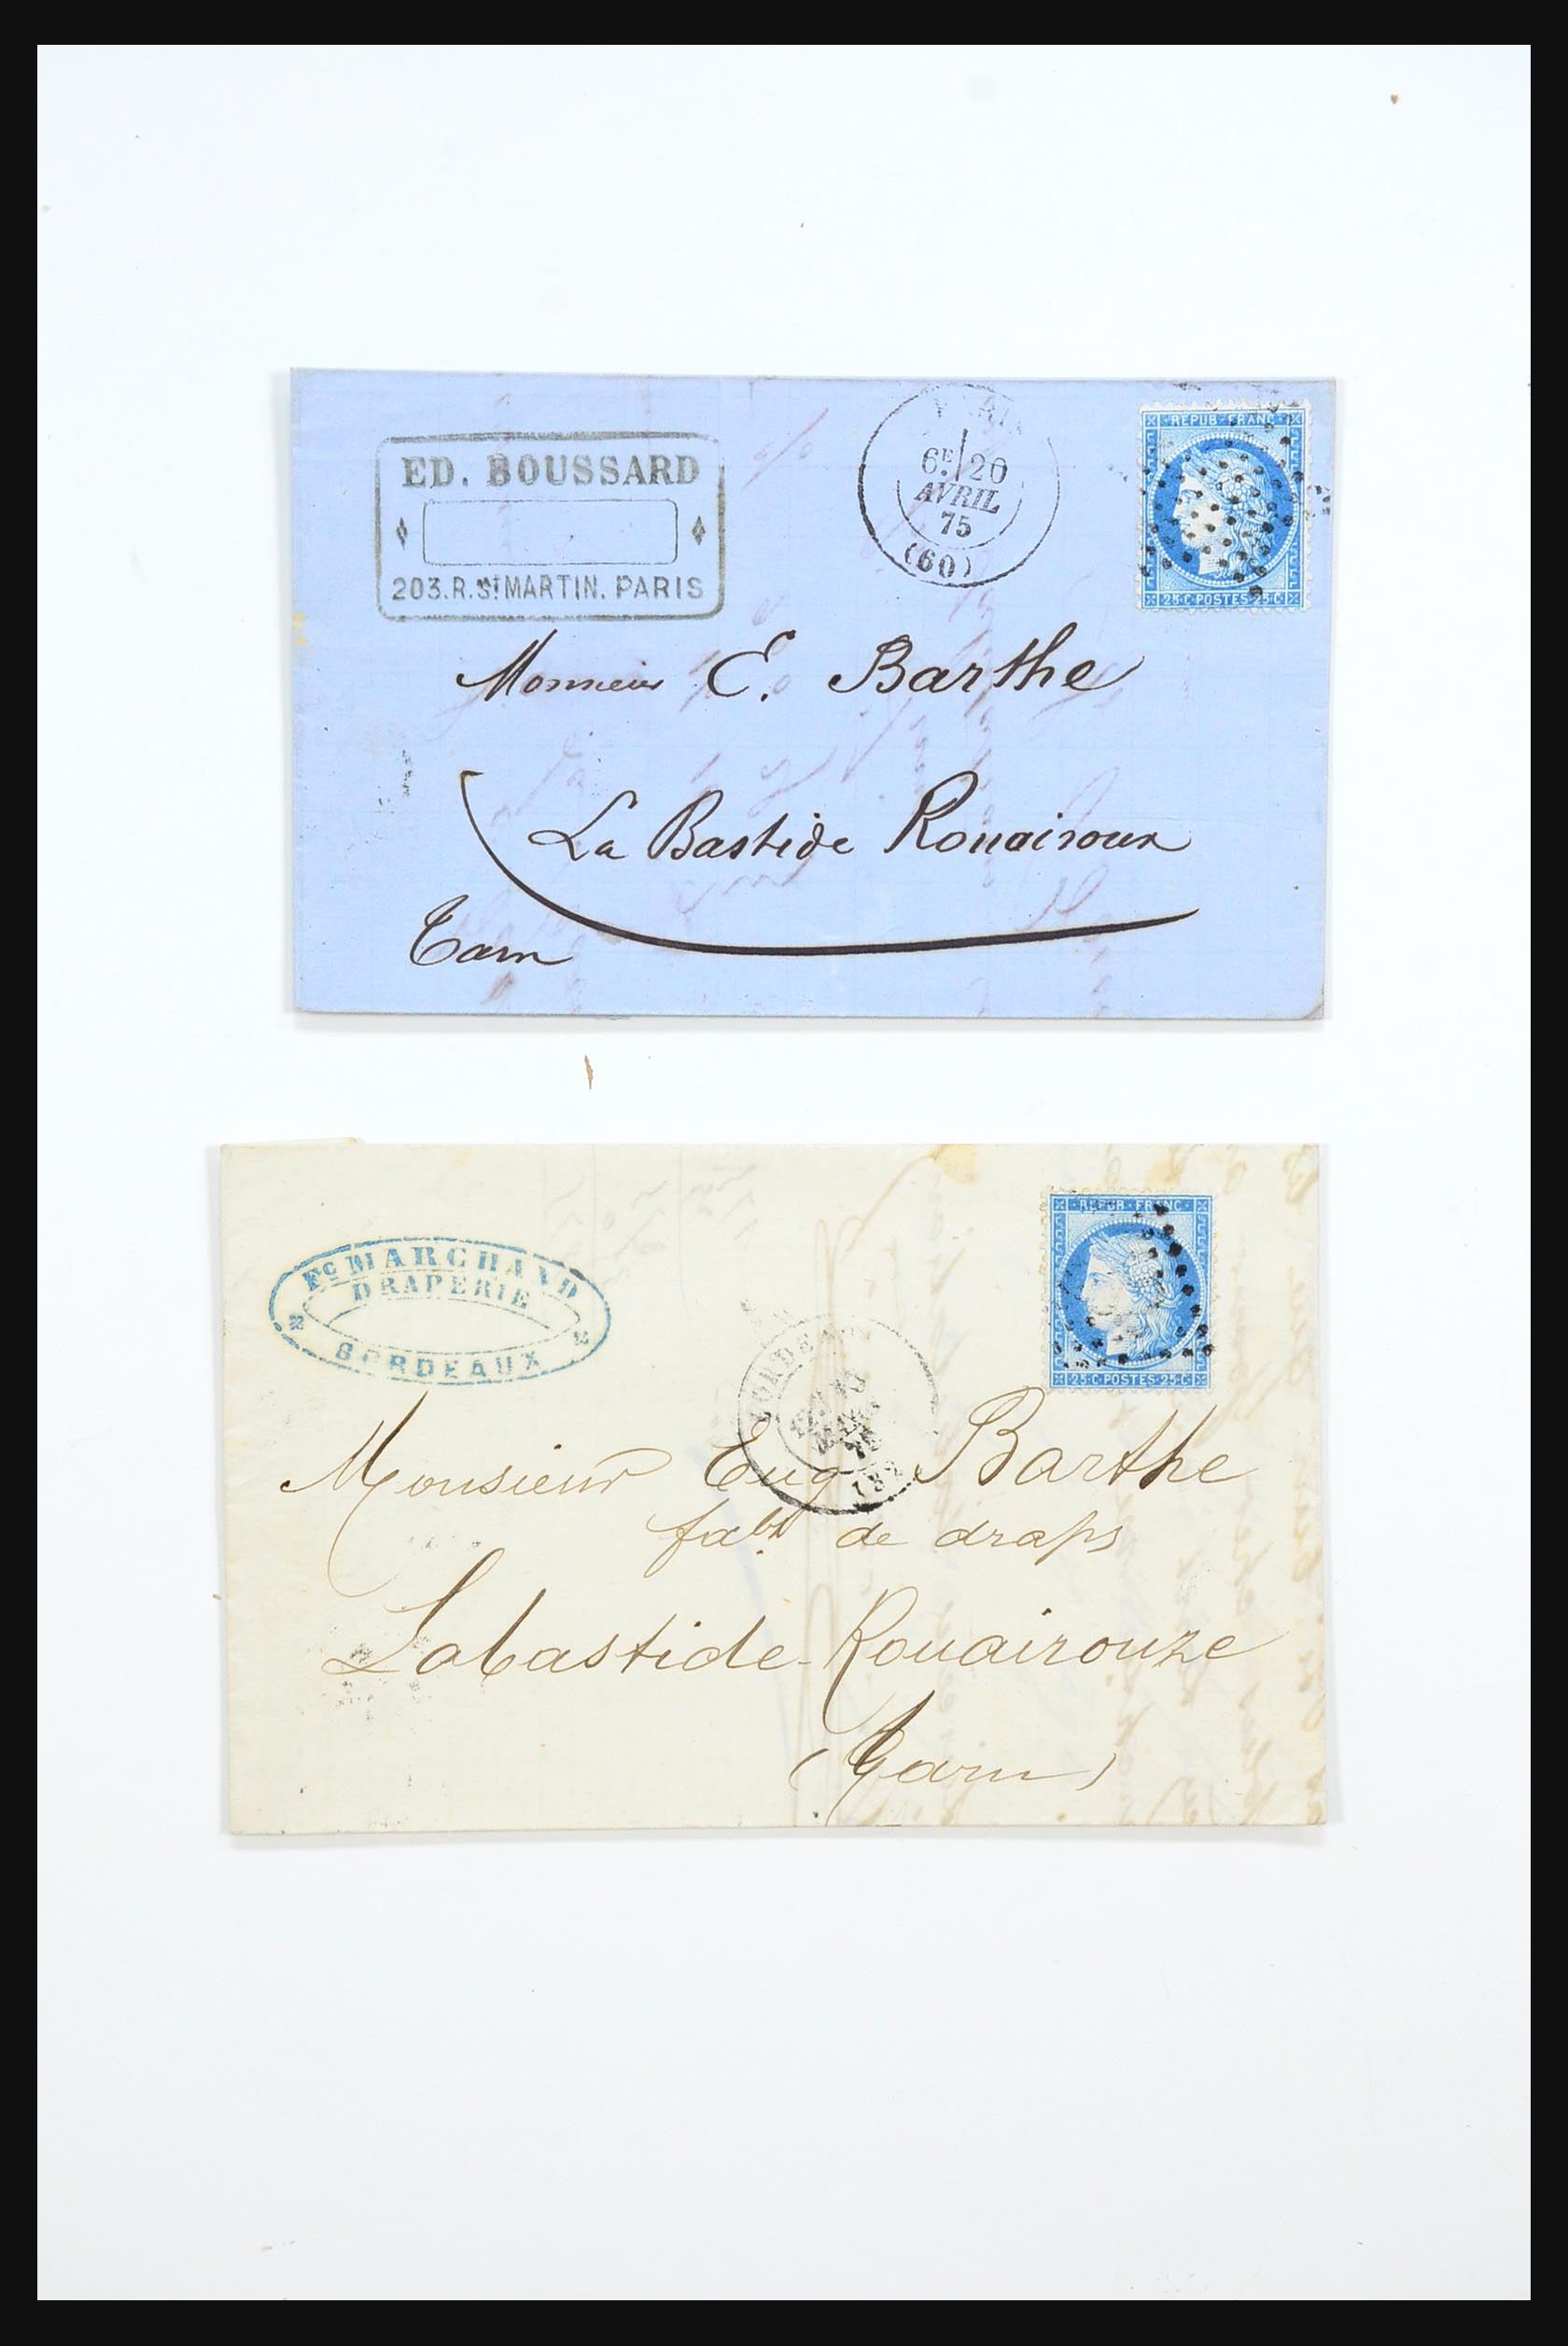 ED. BOUSSARD
203.R.St MARTIN. PARIS
PARIS
6E 20
AVRIL
75
(60)
REPUB·FRANC
25·C·POSTES·25·C
Monsieur E. Barthe
La Bastide Rouairoux
Tarn
Fc MARCHAND
DRAPERIE
BORDEAUX
BORDEAUX
REPUB·FRANC
25·C·POSTES·25·C
Monsieur Eug Barthe
fabt de draps
Labastide-Rouairouze
(Tarn)